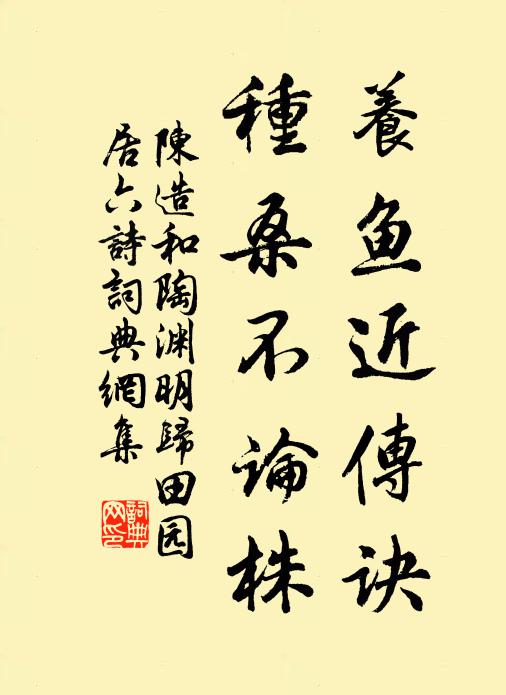 養鱼近傳诀
種桑不論株
陳造和陶渊明歸田园
居六詩詞典網集
詞典网印